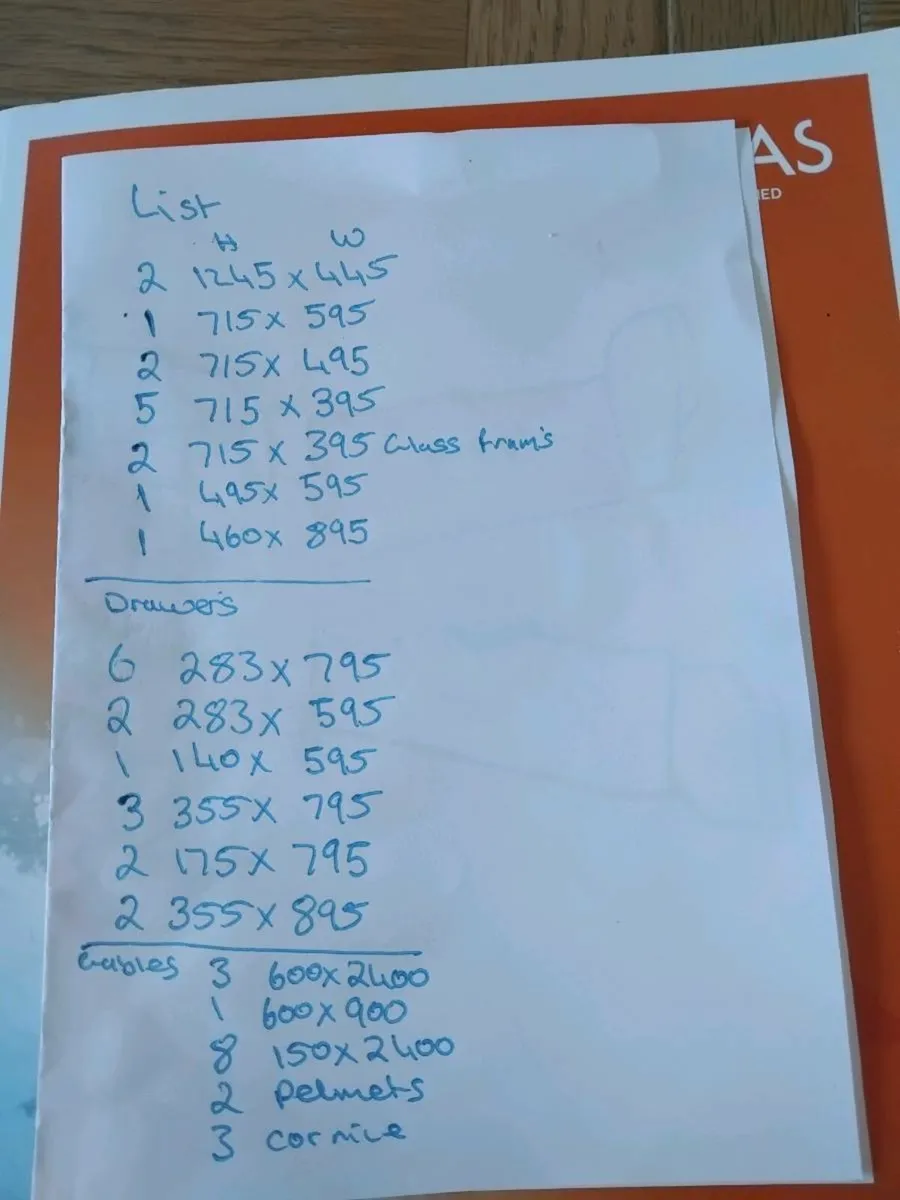 AS
IED
List
H W
2 1245 x 445
1 715 x 595
2 715 x 495
5 715 x 395
2 715 x 395 Glass fram's
1 495 x 595
1 460 x 895
Drawer's
6 283 x 795
2 283 x 595
1 140 x 595
3 355 x 795
2 175 x 795
2 355 x 895
Gables 3 600 x 2400
1 600 x 900
8 150 x 2400
2 Pelmets
3 cornice